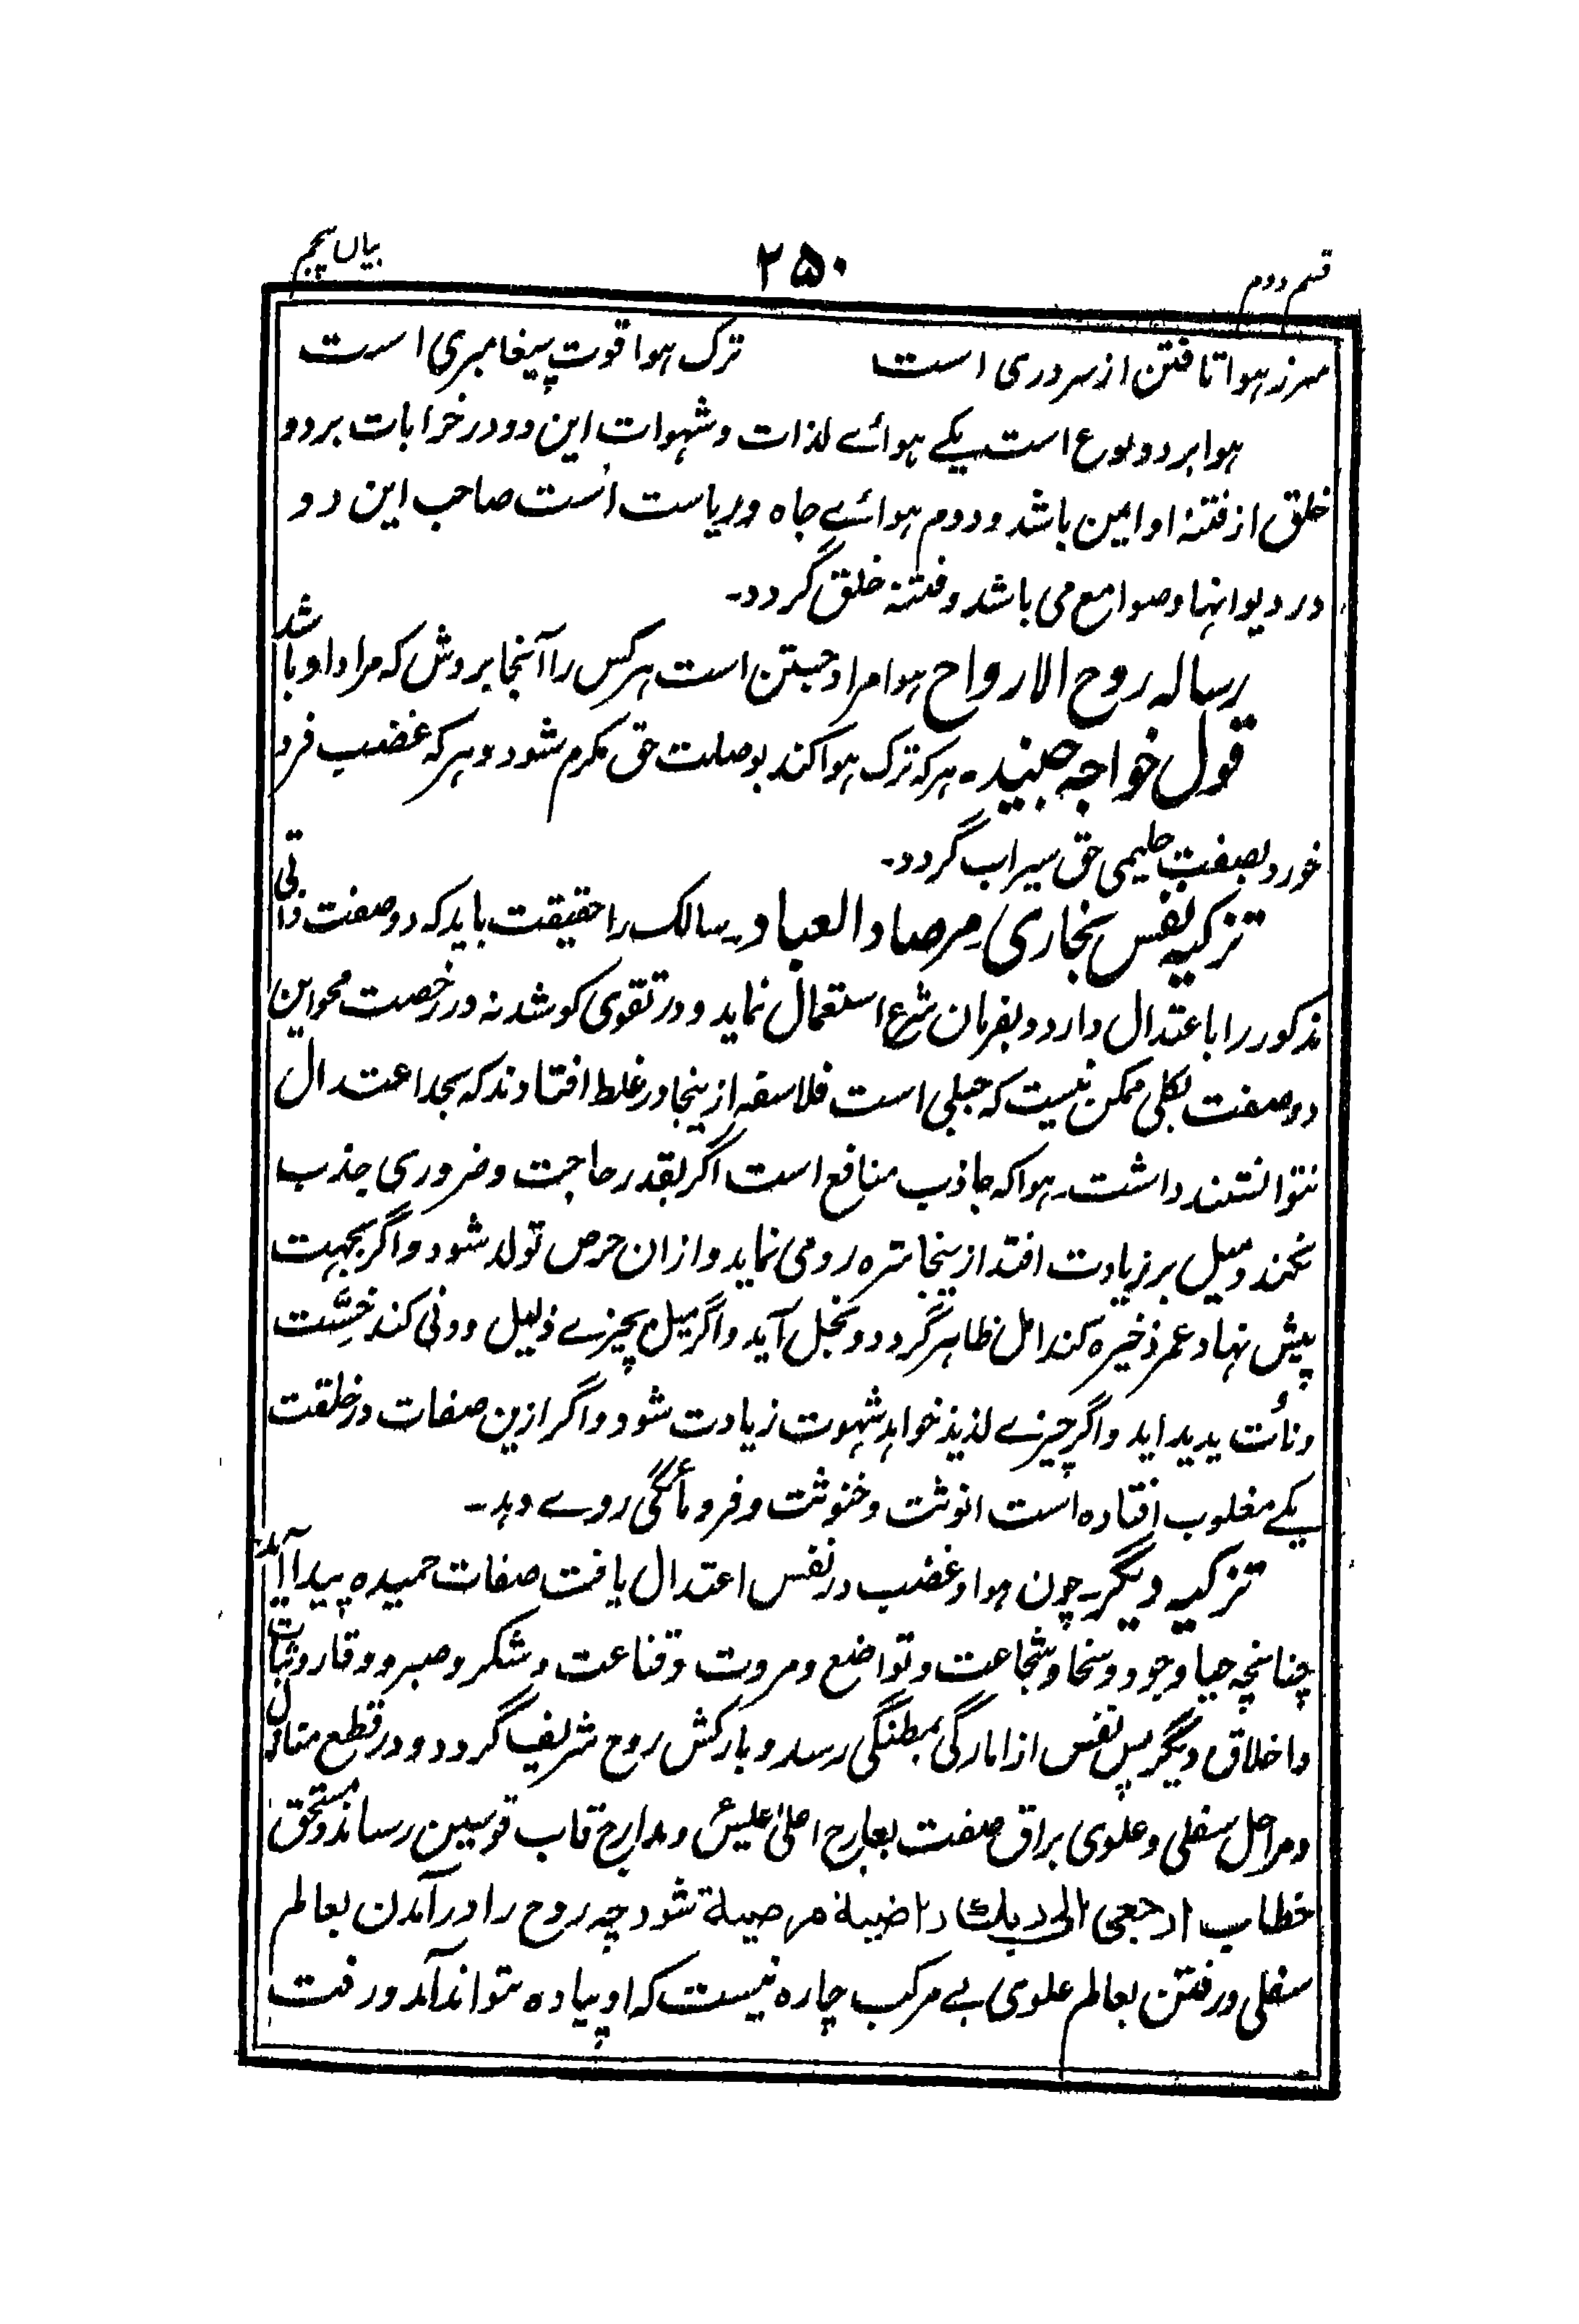 قسم دوم ۲۵۰ بیان پنجم
سرزہوا تافتن از سروری است ترک ہوا قوت پیغامبری است
ہوا بر دو نوع است یکے ہوائے لذات و شہوات این دو در خرابات بر دو
خلق از فتنۂ او امین باشد و دوم ہوائے جاہ و ریاست است صاحب این دو
در دیوانہا و صوامع می باشد و فتنہ خلق گردد۔
رسالہ روح الارواح ہوا مراد جستن است ہر کس را آنجا بر وش کہ مراد او باشد
قول خواجہ جنید۔ ہر کہ ترک ہوا کند بوصلت حق مکرم شود و ہر کہ غضب فرو
خورد بصفت حلیمی حق سیراب گردد۔
تزکیہ نفس بخاری مرصاد العباد۔ سالک را حقیقت باید کہ دو صفت ذاتی
مذکور را باعتدال دارد و بفرمان شرع استعمال نماید و در تقوی کوشد نہ در رخصت محو این
دو صفت بکلی ممکن نیست کہ جبلی است فلاسفہ ازینجا در غلط افتادند کہ بحد اعتدال
نتوانستند داشت۔ ہوا کہ جاذب منافع است اگر بقدر حاجت و ضروری جذب
نکند و میل بر زیادت افتد ازینجا شرہ رو می نماید و ازان حرص تولد شود و اگر بجہت
پیش نہاد عمر ذخیرہ کند امل ظاہر گردد و بخل آید و اگر میل بچیزے ذلیل و دنی کند خسّت
دنأت پدید اید و اگر چیزے لذیذ خواہد شہوت زیادت شود و اگر ازین صفات در خلقت
یکے مغلوب افتادہ است انوثت و خنوثت و فرومائگی روے دہد۔
تزکیہ دیگر۔ چون ہوا و غضب در نفس اعتدال یافت صفات حمیدہ پیدا آید
چنانچہ حیا و جود و سخا و شجاعت و تواضع و مروت و قناعت و شکر و صبر و وقار و ثبات
و اخلاق دیگر پس نفس از امارگی بمطمئنگی رسد و بارکش روح شریف گردد و در قطع منازل
و مراحل سفلی و علوی براق صفت بمعارج اعلیٰ علیین و مدارج قاب قوسین رساند و مستحق
خطاب ارجعی الی ربک راضیة مرضیة شود چہ روح را در آمدن بعالم
سفلی و رفتن بعالم علوی بے مرکب چارہ نیست کہ او پیادہ نتواند آمد و رفت